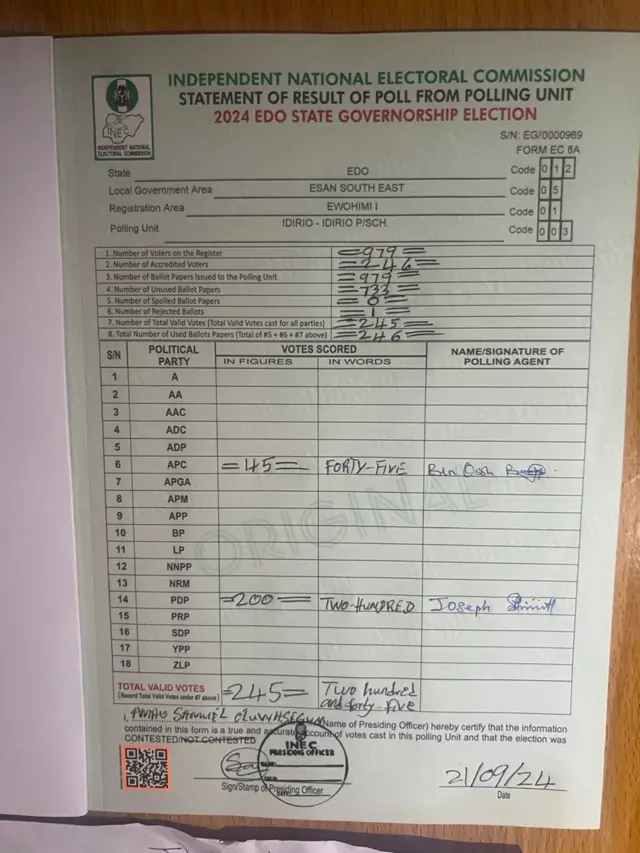 INDEPENDENT NATIONAL ELECTORAL COMMISSION
STATEMENT OF RESULT OF POLL FROM POLLING UNIT
2024 EDO STATE GOVERNORSHIP ELECTION
INEC
INDEPENDENT NATIONAL
ELECTORAL COMMISSION
S/N: EG/0000969
FORM EC 8A
State EDO Code 0 1 2
Local Government Area ESAN SOUTH EAST Code 0 5
Registration Area EWOHIMI I Code 0 1
Polling Unit IDIRIO - IDIRIO P/SCH. Code 0 0 3
1. Number of Voters on the Register =979=
2. Number of Accredited Voters =246=
3. Number of Ballot Papers Issued to the Polling Unit =979=
4. Number of Unused Ballot Papers =733=
5. Number of Spoiled Ballot Papers =0=
6. Number of Rejected Ballots =1=
7. Number of Total Valid Votes (Total Valid Votes cast for all parties) =245=
8. Total Number of Used Ballots Papers (Total of #5 + #6 + #7 above) =246=
S/N POLITICAL PARTY VOTES SCORED NAME/SIGNATURE OF POLLING AGENT
IN FIGURES IN WORDS
1 A
2 AA
3 AAC
4 ADC
5 ADP
6 APC =45= FORTY-FIVE
7 APGA
8 APM
9 APP
10 BP
11 LP
12 NNPP
13 NRM
14 PDP =200= TWO-HUNDRED Joseph
15 PRP
16 SDP
17 YPP
18 ZLP
ORIGINAL
TOTAL VALID VOTES =245= Two hundred
(Record Total Valid Votes under #7 above) and forty-five
I, SAMUEL (Name of Presiding Officer) hereby certify that the information
contained in this form is a true and accurate account of votes cast in this polling Unit and that the election was
CONTESTED/NOT CONTESTED
INEC
PRESIDING OFFICER
21/09/24
Sign/Stamp of Presiding Officer
Date